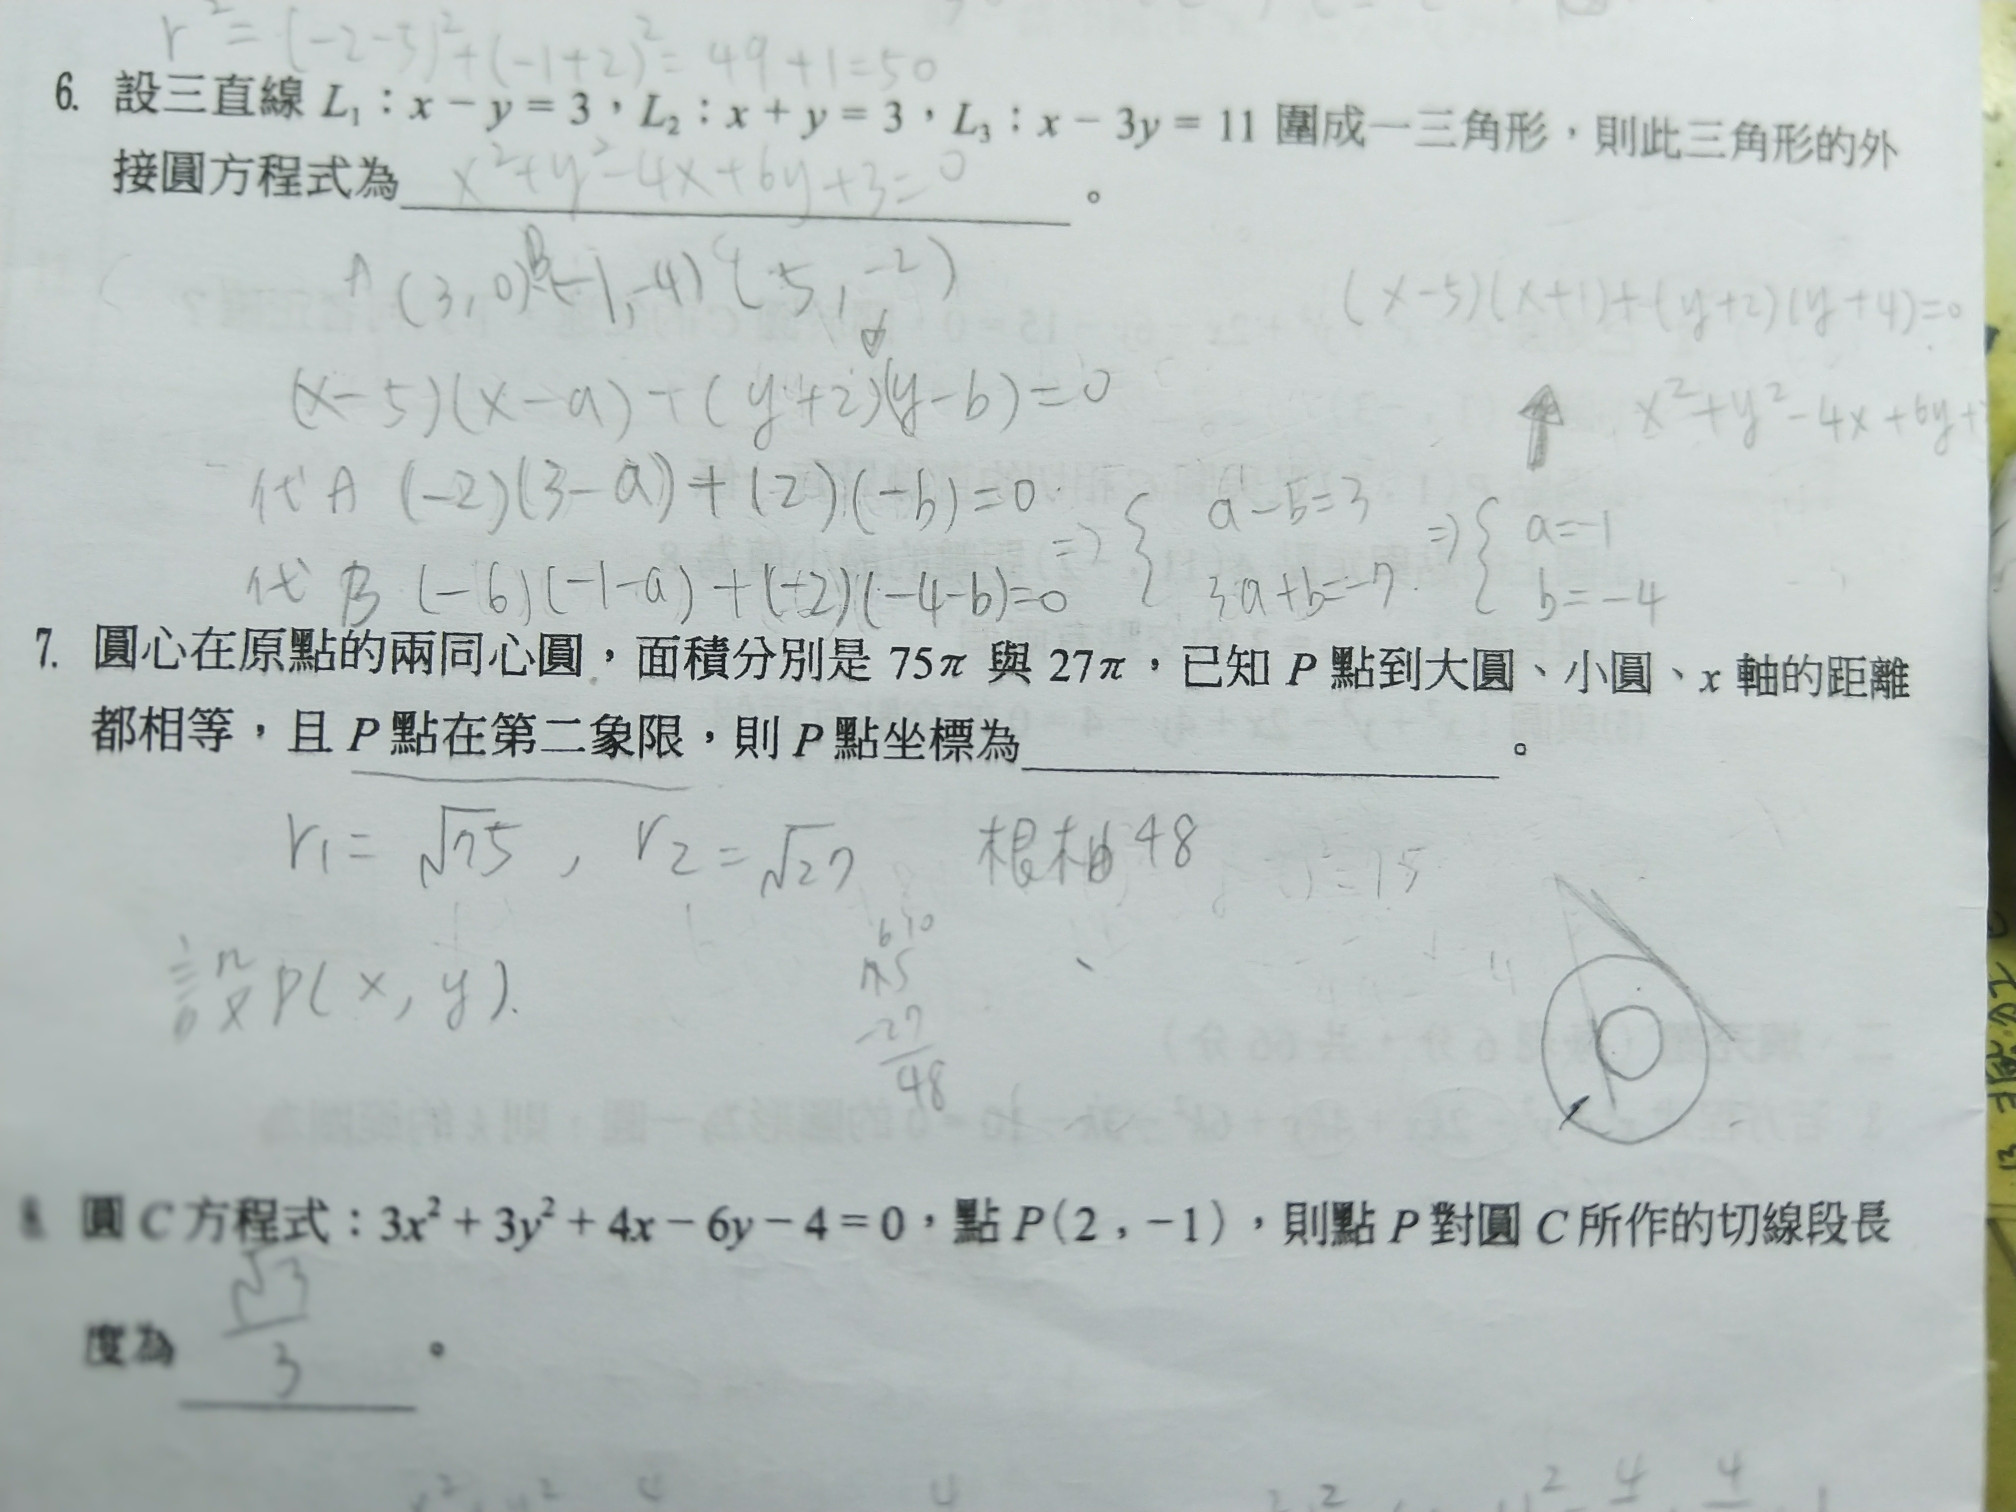 r² = (-2-5)² + (-1+2)² = 49+1=50
6. 設三直線 L₁：x − y = 3，L₂：x + y = 3，L₃：x − 3y = 11 圍成一三角形，則此三角形的外
接圓方程式為 x²+y²-4x+6y+3=0 。
A (3,0) B(-1,-4) (5,-2)
(x-5)(x+1)+(y+2)(y+4)=0
(x-5)(x-a)+(y+2)(y-b)=0
x²+y²-4x+6y+
代A (-2)(3-a)+(2)(-b)=0
代B (-6)(-1-a)+(-2)(-4-b)=0
⇒ { a-b=3
3a+b=-7
⇒ { a=-1
b=-4
7. 圓心在原點的兩同心圓，面積分別是 75π 與 27π，已知 P 點到大圓、小圓、x 軸的距離
都相等，且 P 點在第二象限，則 P 點坐標為 。
r₁ = √75 , r₂ = √27 根軸48
設P(x, y).
6 10
75
-27
48
8. 圓 C 方程式：3x² + 3y² + 4x − 6y − 4 = 0，點 P(2 , −1)，則點 P 對圓 C 所作的切線段長
度為 √3/3 。